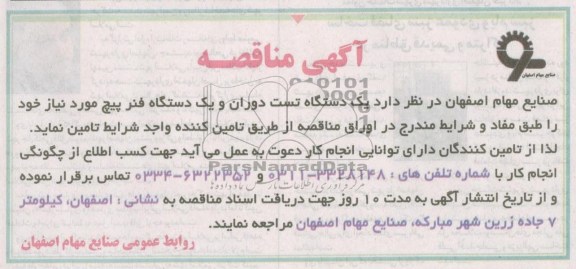 آگهی مناقصه
صنایع مهام اصفهان
صنایع مهام اصفهان در نظر دارد یک دستگاه تست دوران و یک دستگاه فنر پیچ مورد نیاز خود
را طبق مفاد و شرایط مندرج در اوراق مناقصه از طریق تامین کننده واجد شرایط تامین نماید.
لذا از تامین کنندگان دارای توانایی انجام کار دعوت به عمل می آید جهت کسب اطلاع از چگونگی
انجام کار با شماره تلفن های : ۳۳۴۸۱۴۸-۰۳۱۱ و ۶۳۲۲۳۵۲-۰۳۳۴ تماس برقرار نموده
و از تاریخ انتشار آگهی به مدت ۱۰ روز جهت دریافت اسناد مناقصه به نشانی : اصفهان، کیلومتر
۷ جاده زرین شهر مبارکه، صنایع مهام اصفهان مراجعه نمایند.
روابط عمومی صنایع مهام اصفهان
ParsNamadData